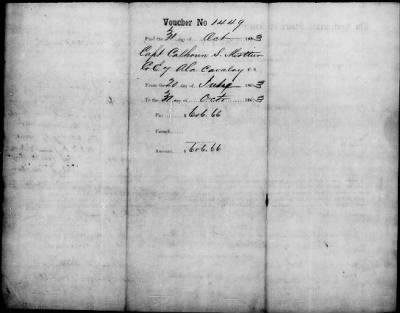 Voucher No 1449
Paid the 31 day of Oct 1863
Capt Calhoun S.
Co E 7 Ala Cavalry C.S.
From the 20 day of July 1863
To the 31 day of Octo 1863
Pay $ 606.66
Forage
Amount $ 606.66